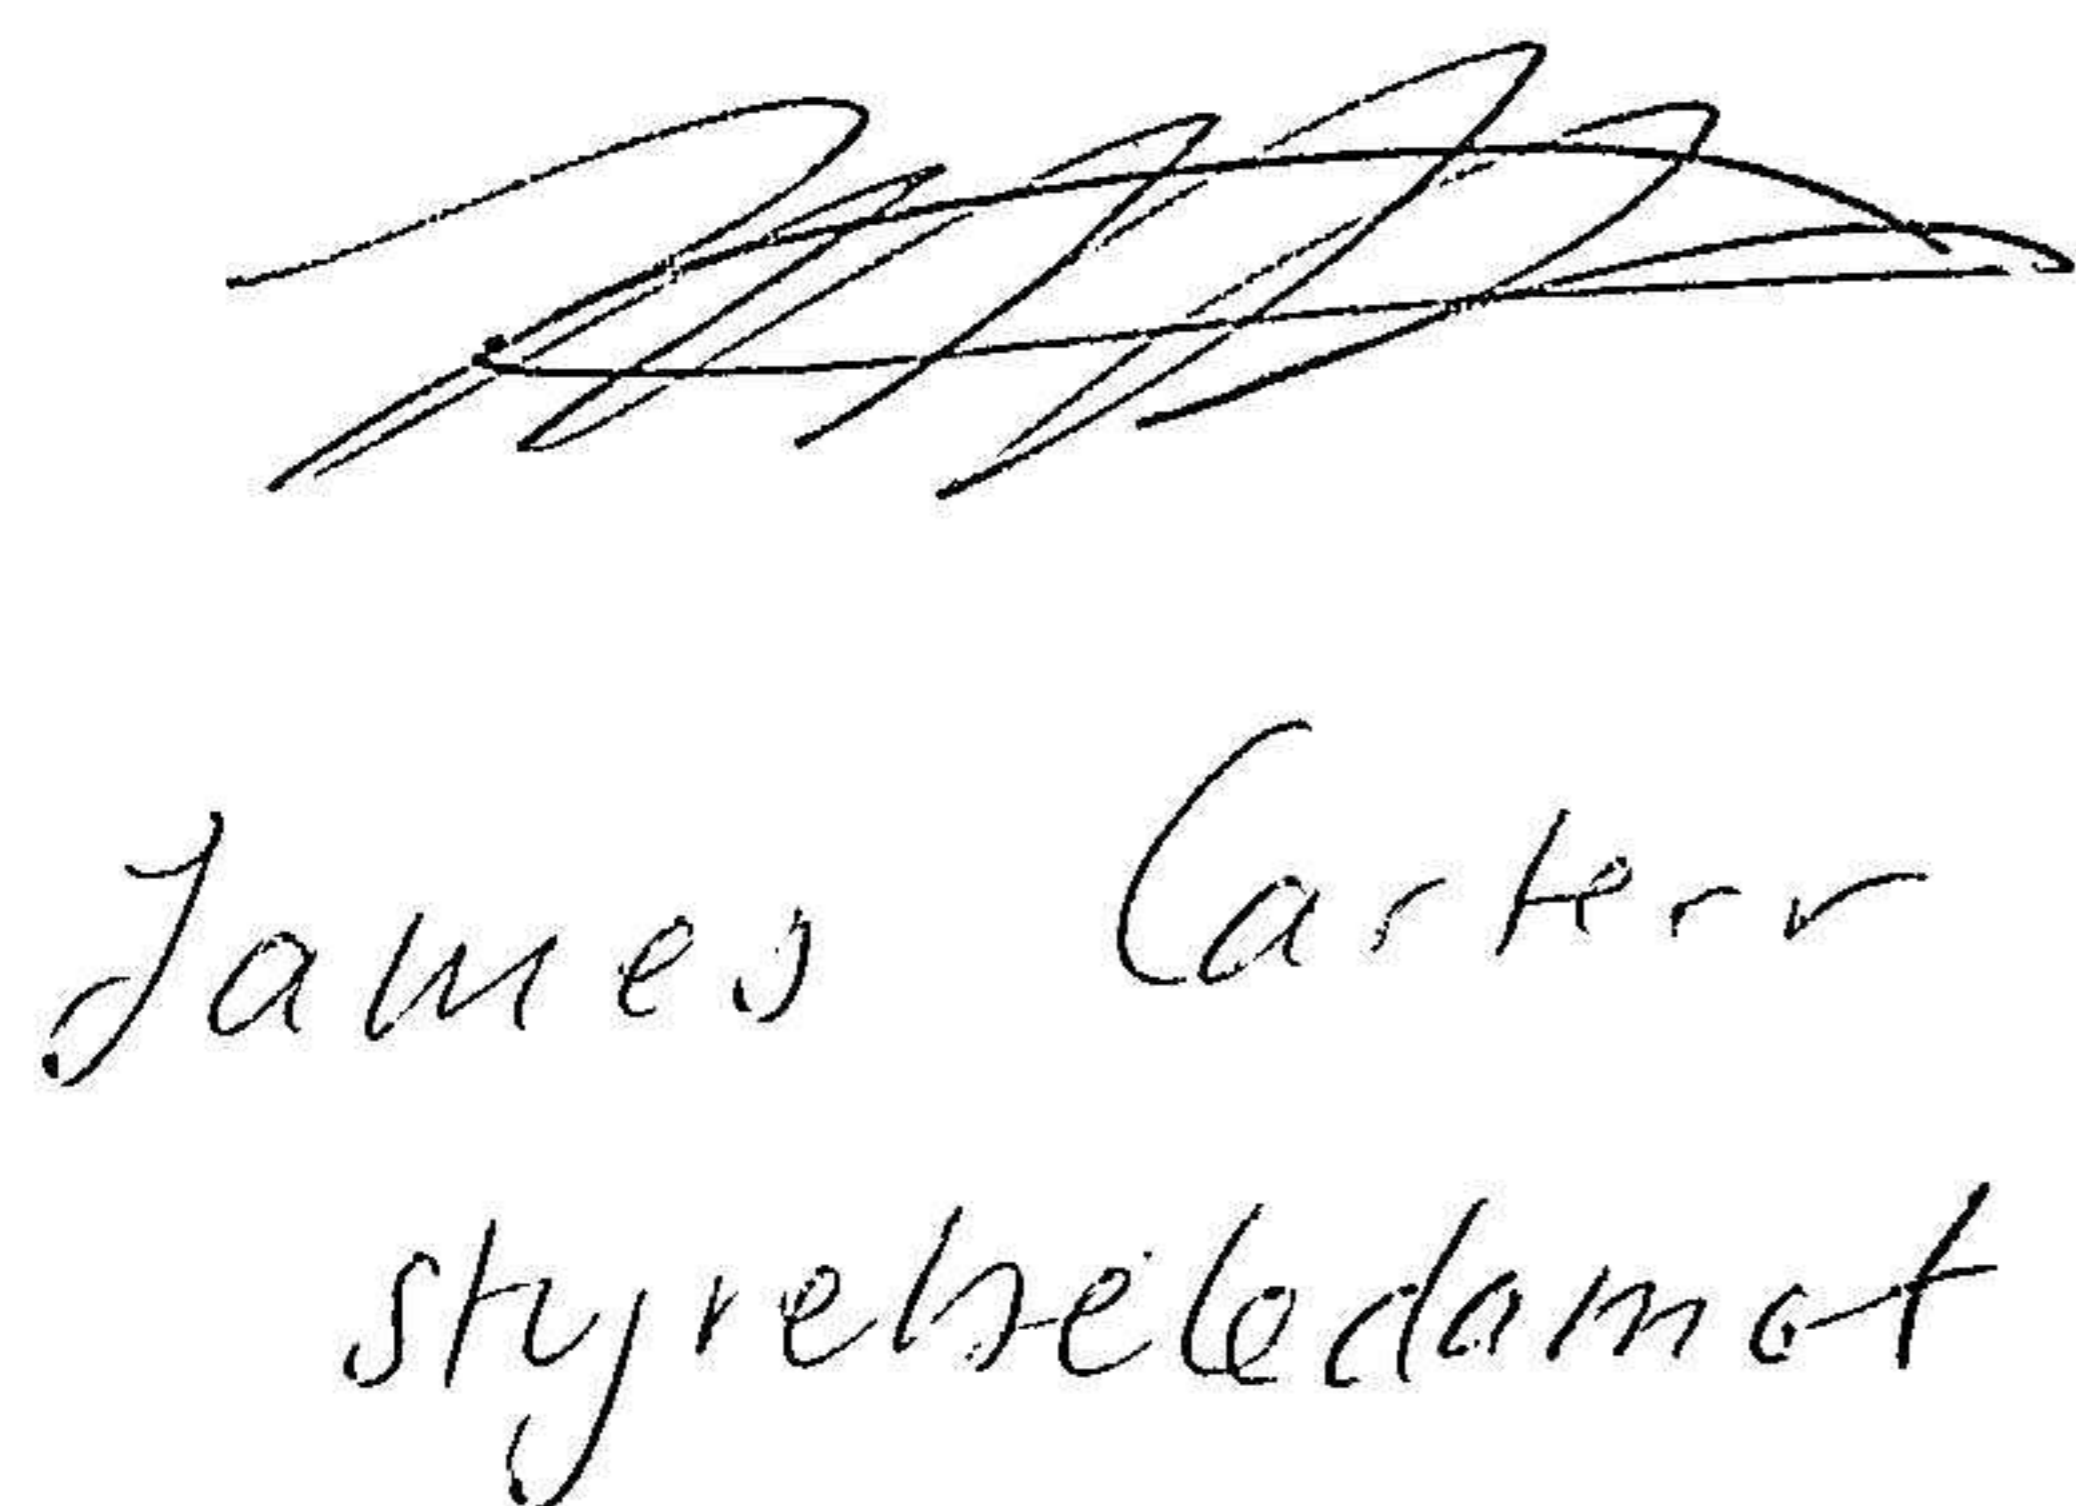 James Carterr
styrelseledamot